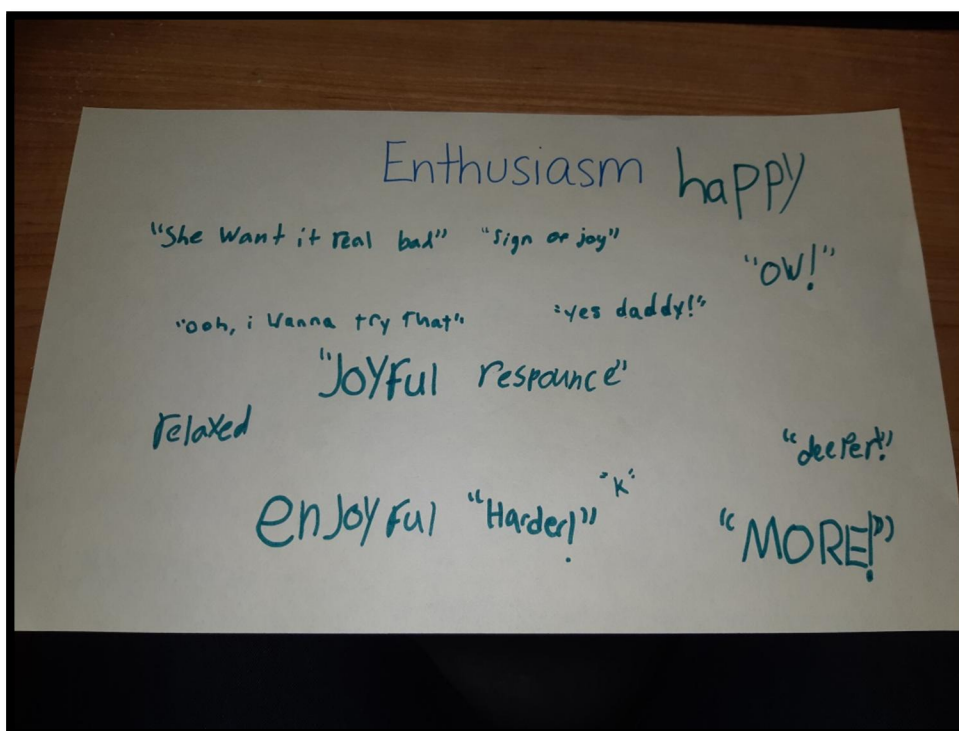 Enthusiasm happy
"She want it real bad" "sign of joy"
"OW!"
"ooh, i wanna try that" "yes daddy!"
"JOYFul respounce"
relaxed
"deeper!"
enJoyful "Harder!" "K"
"MORE!"